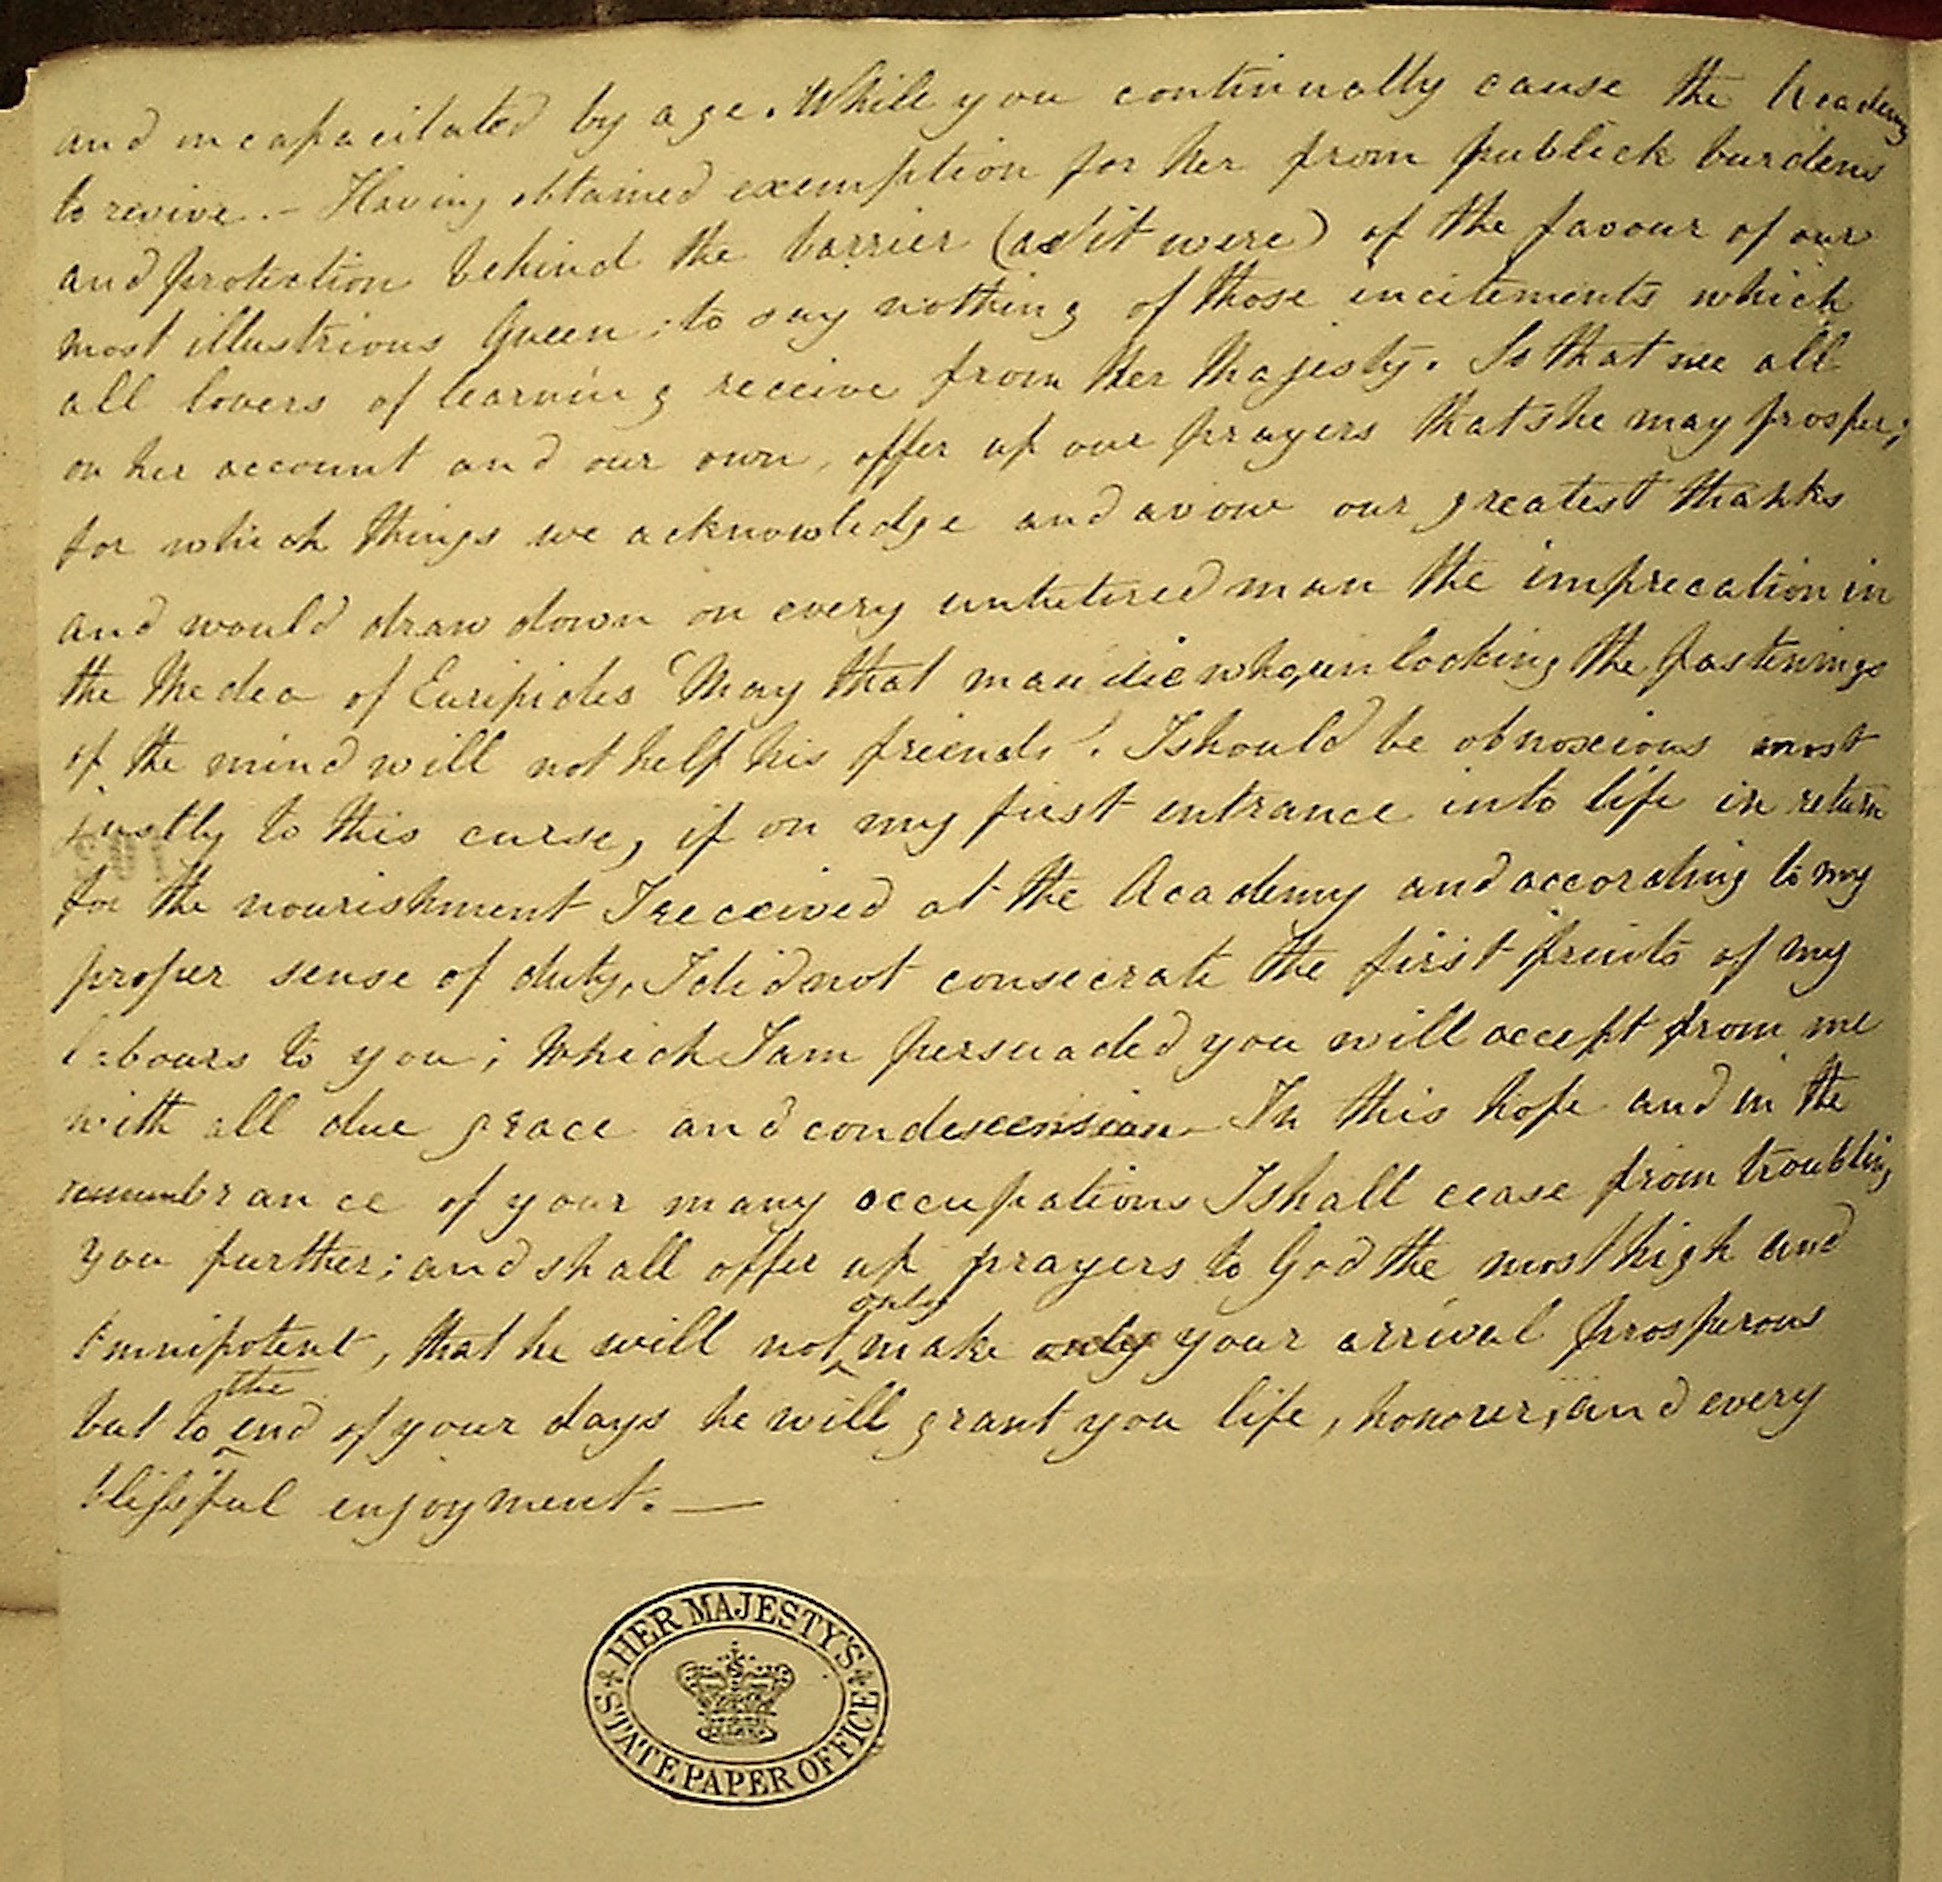 and incapacitated by age. While you continually cause the Academy
to revive. – Having obtained exemption for her from publick burdens
and protection behind the barrier (as it were) of the favour of our
most illustrious Queen; to say nothing of those incitements which
all lovers of learning receive from Her Majesty. So that we all
on her account and our own, offer up our prayers that she may prosper;
for which things we acknowledge and avow our greatest thanks
and would draw down on every untutored man the imprecation in
the Medea of Euripides 'May that man die who, unlocking the fastenings
of the mind will not help his friends'. I should be obnoxious most
justly to this curse, if on my first entrance into life in return
for the nourishment I received at the Academy and according to my
proper sense of duty, I did not consecrate the first fruits of my
labours to you; which I am persuaded you will accept from me
with all due grace and condescension – In this hope and in the
remembrance of your many occupations I shall cease from troubling
you further; and shall offer up prayers to God the most high and
Omnipotent, that he will not only make only your arrival prosperous
but to the end of your days he will grant you life, honour, and every
blissful enjoyment. —
HER MAJESTY'S
STATE PAPER OFFICE